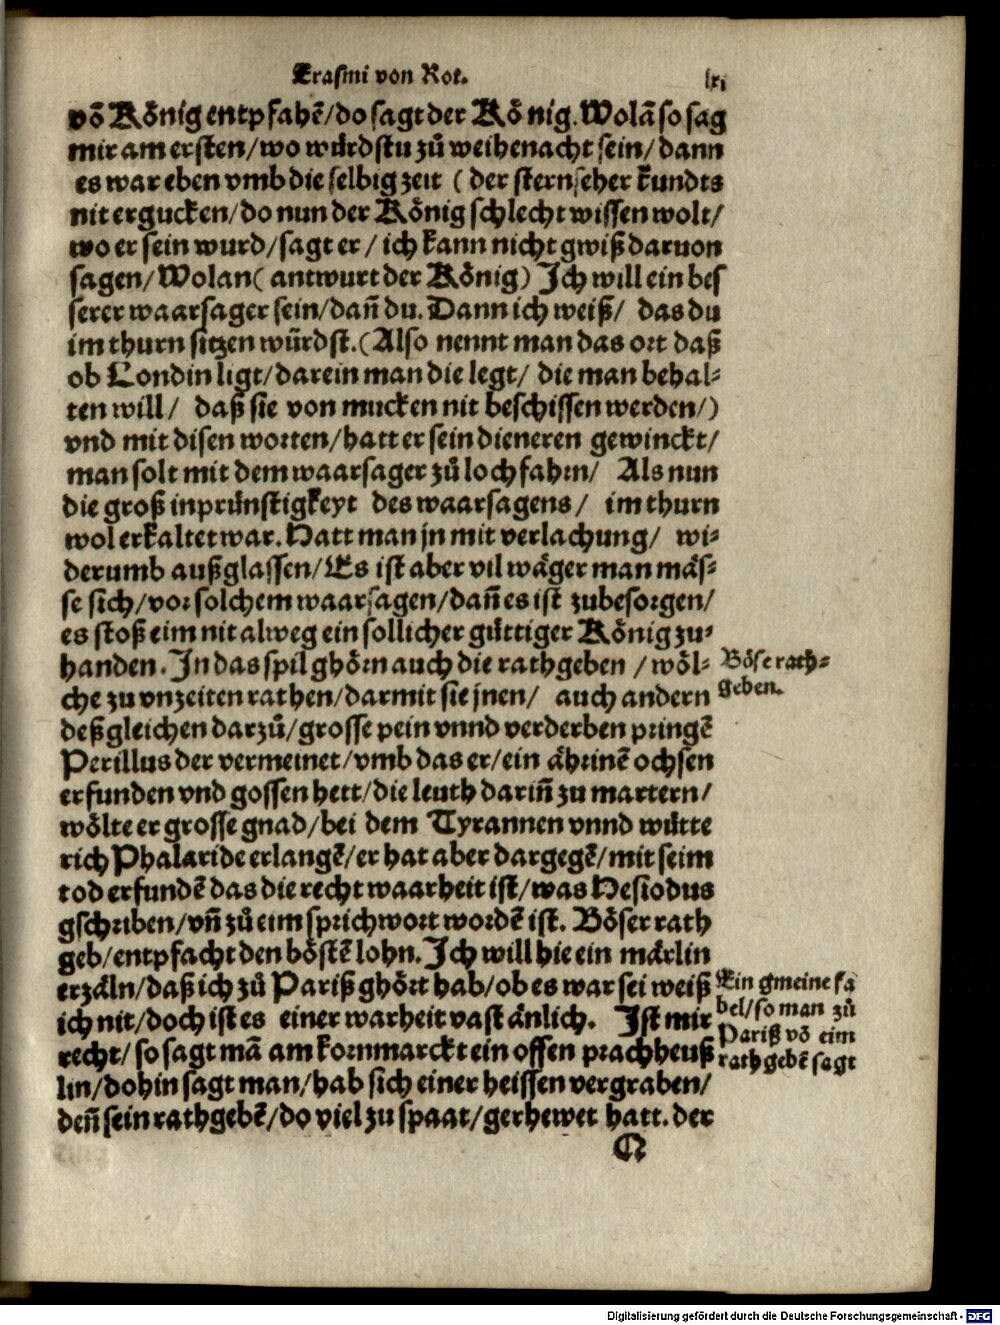 Erasmi von Rot. lxj
võ Kőnig entpfahẽ/do sagt der Kőnig. Wolã so sag
mir am ersten/wo würdstu zů weihenacht sein/dann
es war eben vmb die selbig zeit ( der sternseher kundts
nit ergucken/do nun der Kőnig schlecht wissen wolt/
wo er sein wurd/sagt er/ ich kann nicht gwiß daruon
sagen/Wolan( antwurt der Kőnig) Jch will ein bes
serer waarsager sein/dañ du. Dann ich weiß/ das du
im thurn sitzen würdst.(Also nennt man das ort daß
ob Londin ligt/darein man die legt/ die man behal-
ten will/ daß sie von mucken nit beschissen werden/)
vnd mit disen worten/hatt er sein dieneren gewinckt/
man solt mit dem waarsager zů loch fahrn/ Als nun
die groß inprünstigkeyt des waarsagens/ im thurn
wol erkaltet war. Hatt man jn mit verlachung/ wi-
derumb außglassen/Es ist aber vil wäger man mäs-
se sich/vor solchem waarsagen/dañ es ist zubesorgen/
es stoß eim nit alweg ein sollicher güttiger Kőnig zu-
handen. Jn das spil ghőrn auch die rathgeben /wől-
che zu vnzeiten rathen/darmit sie jnen/ auch andern
deßgleichen darzů/grosse pein vnnd verderben pringẽ
Perillus der vermeinet/vmb das er/ein ährinẽ ochsen
erfunden vnd gossen hett/die leuth dariñ zu martern/
wőlte er grosse gnad/bei dem Tyrannen vnnd wütte
rich Phalaride erlangẽ/er hat aber dargegẽ/mit seim
tod erfundẽ das die recht waarheit ist/was Hesiodus
gschriben/vñ zů eim sprichwort wordẽ ist. Bőser rath
geb/entpfacht den bőstẽ lohn. Jch will hie ein märlin
erzäln/daß ich zů Pariß ghőrt hab/ob es war sei weiß
ich nit/doch ist es einer warheit vast änlich. Jst mir
recht/so sagt mã am kornmarckt ein offen prachheuß
lin/dohin sagt man/hab sich einer heissen vergraben/
deñ sein rathgebẽ/do viel zu spaat/gerhewet hatt. der
Q
Bőse rath-
geben.
Ein gmeine fa
bel/so man zů
Pariß võ eim
rathgebẽ sagt
Digitalisierung gefördert durch die Deutsche Forschungsgemeinschaft - DFG